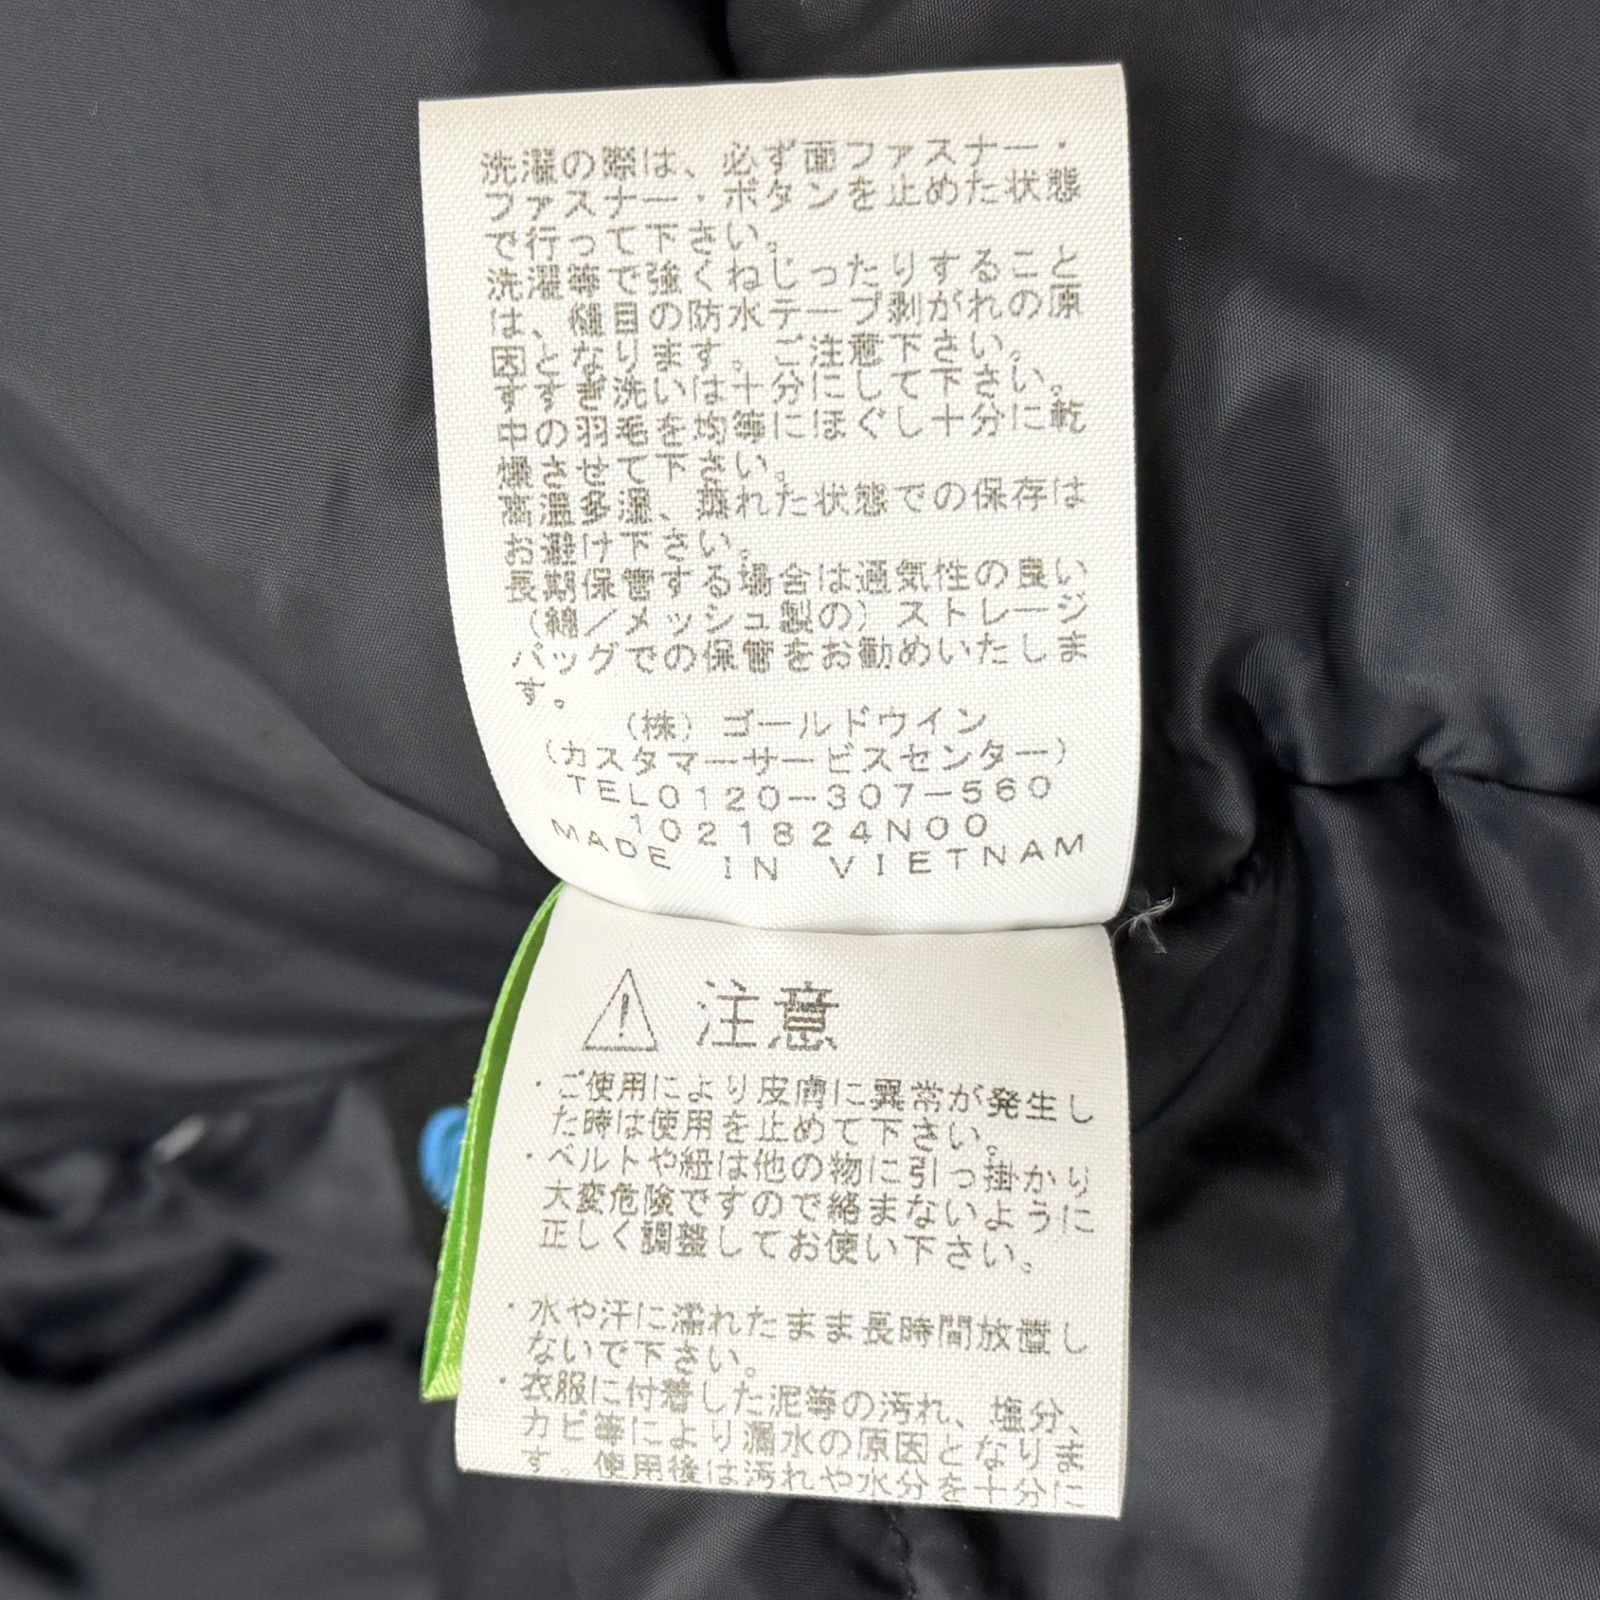 洗濯の際は、必ず面ファスナー・
ファスナー・ボタンを止めた状態
で行って下さい。
洗濯等で強くねじったりすること
は、縫目の防水テープ剥がれの原
因となります。ご注意下さい。
すすぎ洗いは十分にして下さい。
中の羽毛を均等にほぐし十分に乾
燥させて下さい。
高温多湿、蒸れた状態での保存は
お避け下さい。
長期保管する場合は通気性の良い
(綿／メッシュ製の)ストレージ
バッグでの保管をお勧めいたしま
す。
(株)ゴールドウイン
(カスタマーサービスセンター)
TEL0120-307-560
1021824N00
MADE IN VIETNAM
注意
・ご使用により皮膚に異常が発生し
た時は使用を止めて下さい。
・ベルトや紐は他の物に引っ掛かり
大変危険ですので絡まないように
正しく調整してお使い下さい。
・水や汗に濡れたまま長時間放置し
ないで下さい。
・衣服に付着した泥等の汚れ、塩分、
カビ等により漏水の原因となりま
す。使用後は汚れや水分を十分に